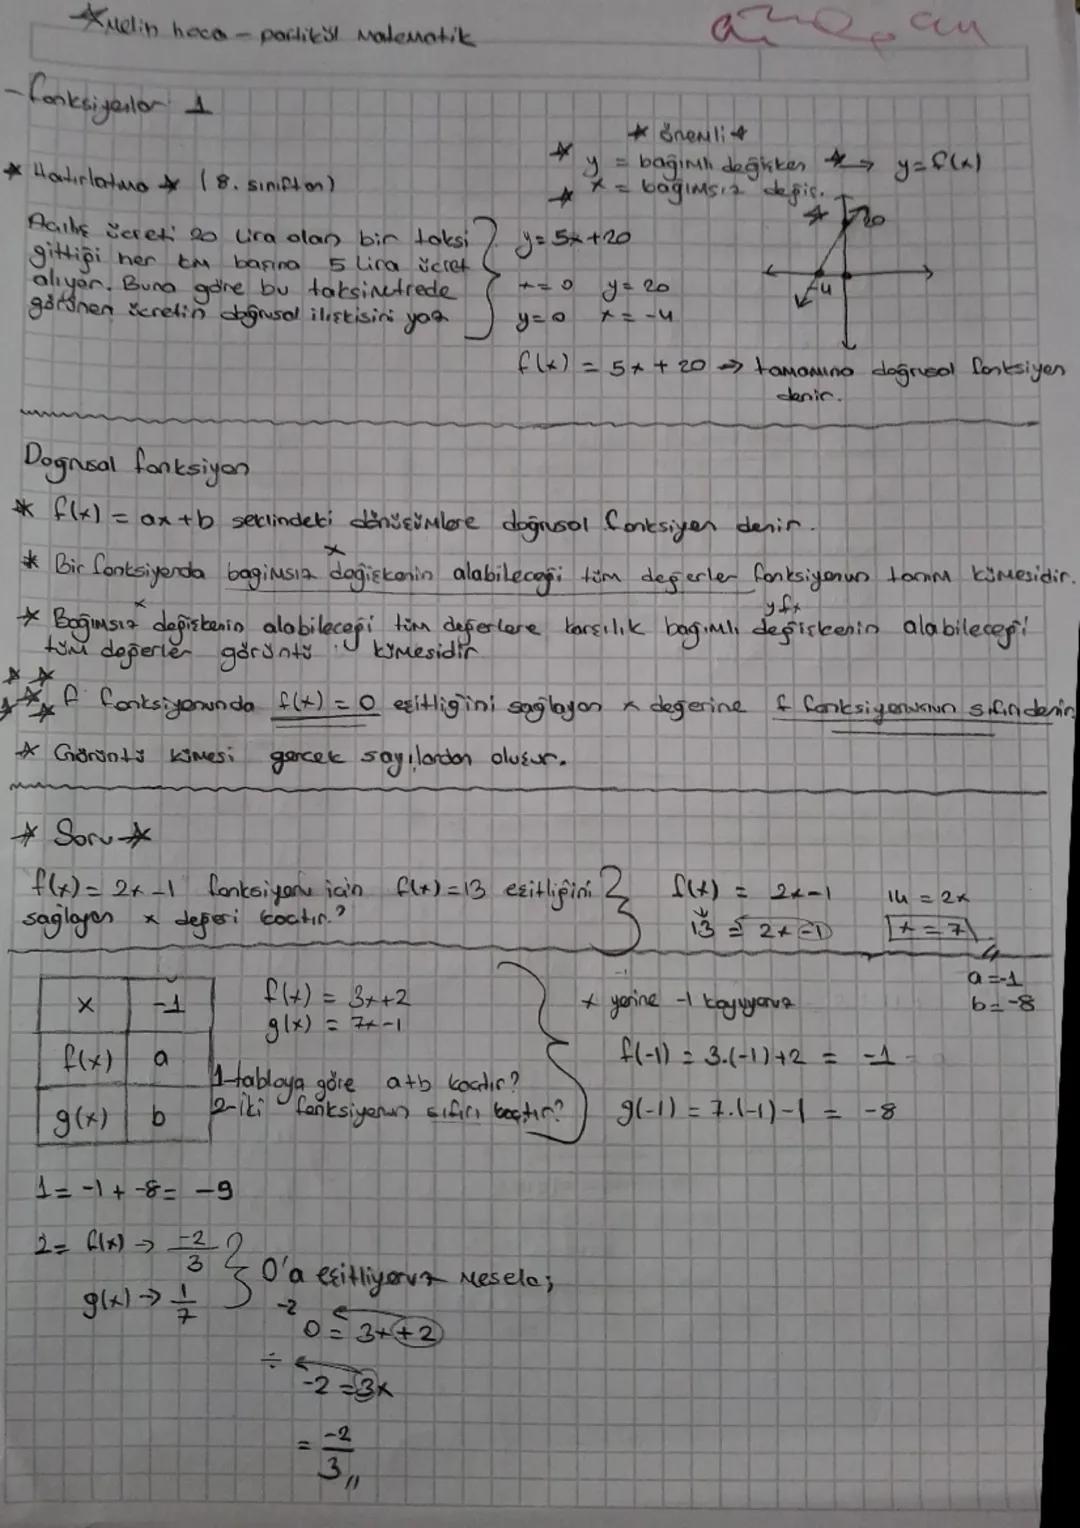 *Melih hoca - partikül Matematik
- fonksiyonlar 1
* Hatırlatma * (8. sınıftan)
Açılış ücreti 20 lira olan bir taksi
gittiği her km başına 5 lira ücret
alıyor. Buna göre bu taksimetrede
görünen ücretin doğrusal ilişkisini yaz
* önemli *
* y = bağımlı değişken * → y=f(x)
* x = bağımsız değiş.
y=5x+20
x=0 y=20
y=0 x=-4
20
-4
f(x) = 5x+20 → tamamına doğrusal fonksiyon
denir.
Doğrusal fonksiyon
* f(x) = ax+b şeklindeki dönüşümlere doğrusal fonksiyon denir.
x
* Bir fonksiyonda bagımsız dağişkenin alabileceği tüm değerler fonksiyonun tanım kümesidir.
x yfx
* Bağımsız değişkenin alabileceği tüm değerlere karşılık bağımlı değişkenin alabileceği
tüm değerler görüntü kümesidir
* f fonksiyonunda f(x) = 0 eşitliğini sağlayan x değerine f fonksiyonunun sıfırı denir
* Görüntü kümesi gerçek sayılardan oluşur.
* Soru *
f(x)=2x-1 fonksiyonu için f(x)=13 eşitliğini
sağlayan x değeri kaçtır?
f(x) = 2x-1
13 = 2x-1
14 = 2x
x=7
x -1
f(x) a
g(x) b
f(x) = 3x+2
g(x) = 7x-1
1-tabloya göre a+b kaçtır?
2-iki fonksiyonun sıfırı kaçtır?
-1
x yerine -1 koyuyoruz
a=-1
b=-8
f(-1) = 3.(-1)+2 = -1
g(-1) = 7.(-1)-1 = -8
1= -1 + -8= -9
2= f(x) → -2/3
g(x) → 1/7
0'a eşitliyoruz mesela;
-2
0 = 3x+2
÷
-2 = 3x
= -2/3 //